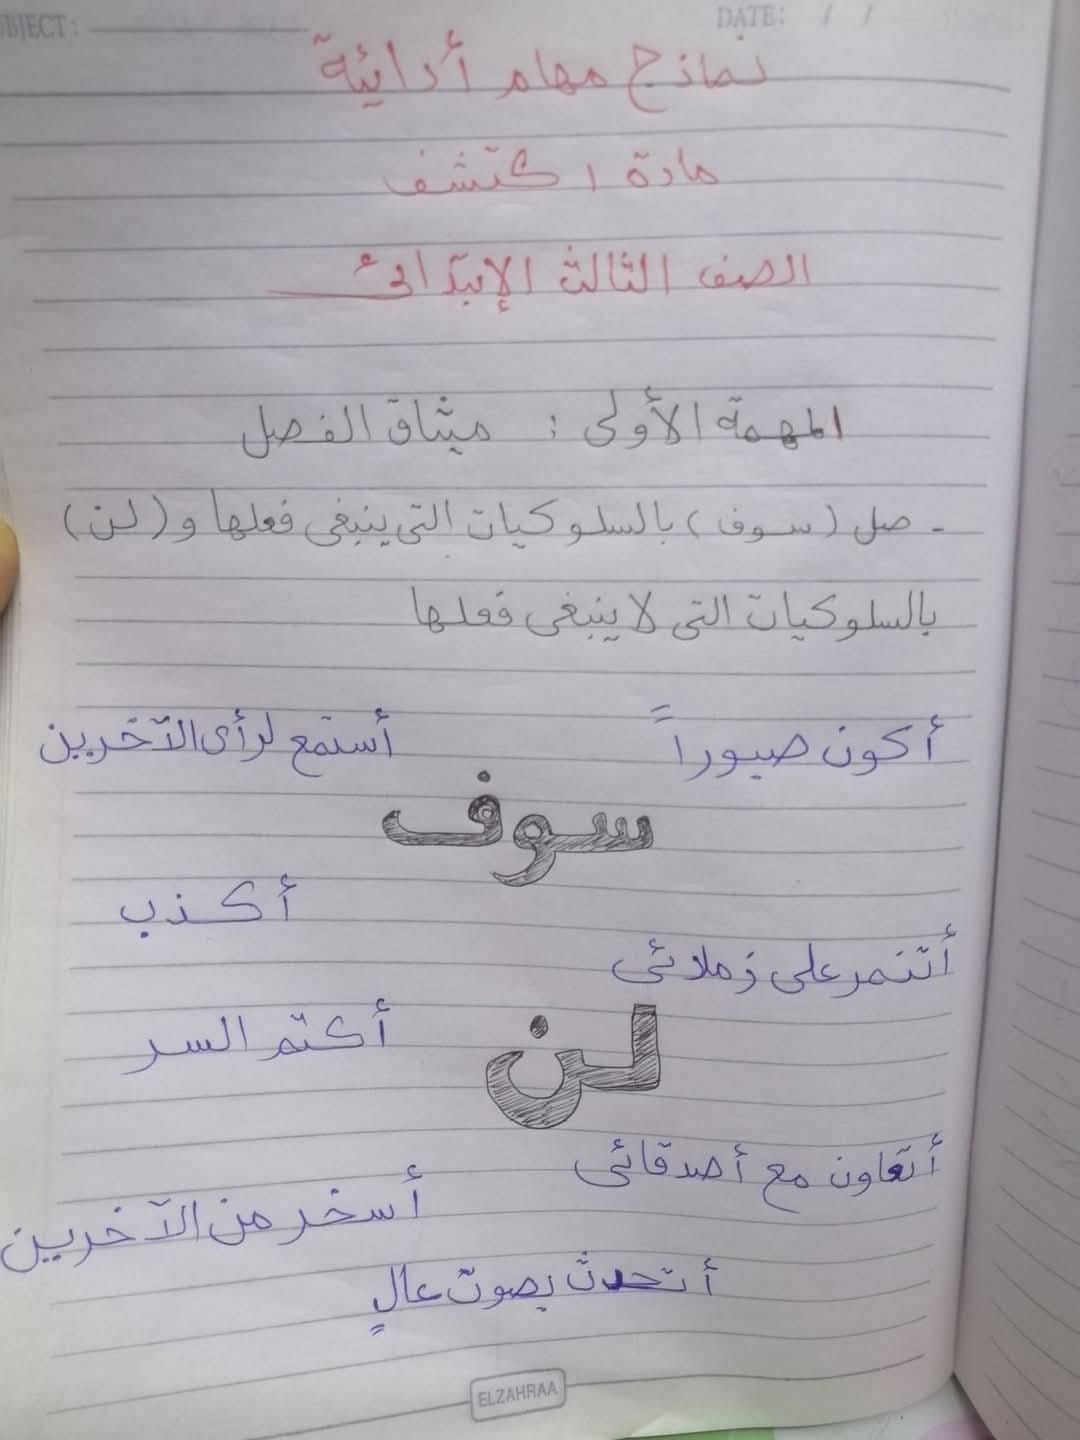 SUBJECT:
DATE: / /
نماذج مهام أدائية
مادة اكتشف
الصف الثالث الإبتدائى
المهمة الأولى : ميثاق الفصل
- صل (سوف) بالسلوكيات التى ينبغى فعلها و(لن)
بالسلوكيات التى لا ينبغى فعلها
أكون صبوراً
أستمع لرأى الآخرين
سوف
أكذب
أتنمر على زملائى
أكتم السر
لن
أتعاون مع أصدقائى
أسخر من الآخرين
أتحدث بصوت عالٍ
ELZAHRAA